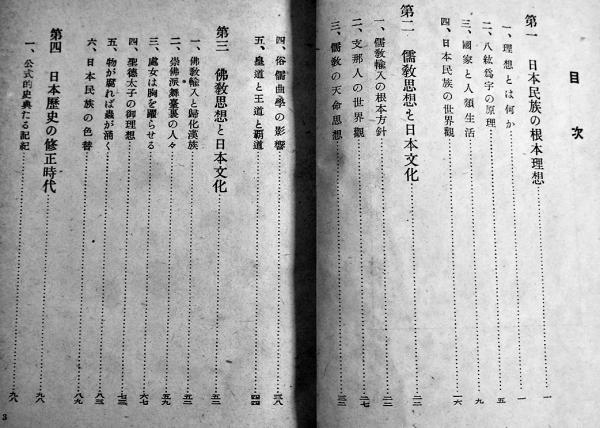 目次
第一 日本民族の根本理想 一
一、理想とは何か 一
二、八紘爲宇の原理 五
三、國家と人類生活 九
四、日本民族の世界觀 一六
第二 儒教思想と日本文化 二二
一、儒教輸入の根本方針 二二
二、支那人の世界觀 二七
三、儒教の天命思想 三三
四、俗儒曲學の影響 三八
五、皇道と王道と覇道 四四
第三 佛教思想と日本文化 五二
一、佛教輸入と歸化漢族 五二
二、崇佛派舞臺裏の人々 五九
三、處女は胸を躍らせる 六七
四、聖德太子の御理想 七三
五、物が腐れば蟲が涌く 八三
六、日本民族の色替 八九
第四 日本歷史の修正時代 九八
一、公式的史典たる記紀 九八
3